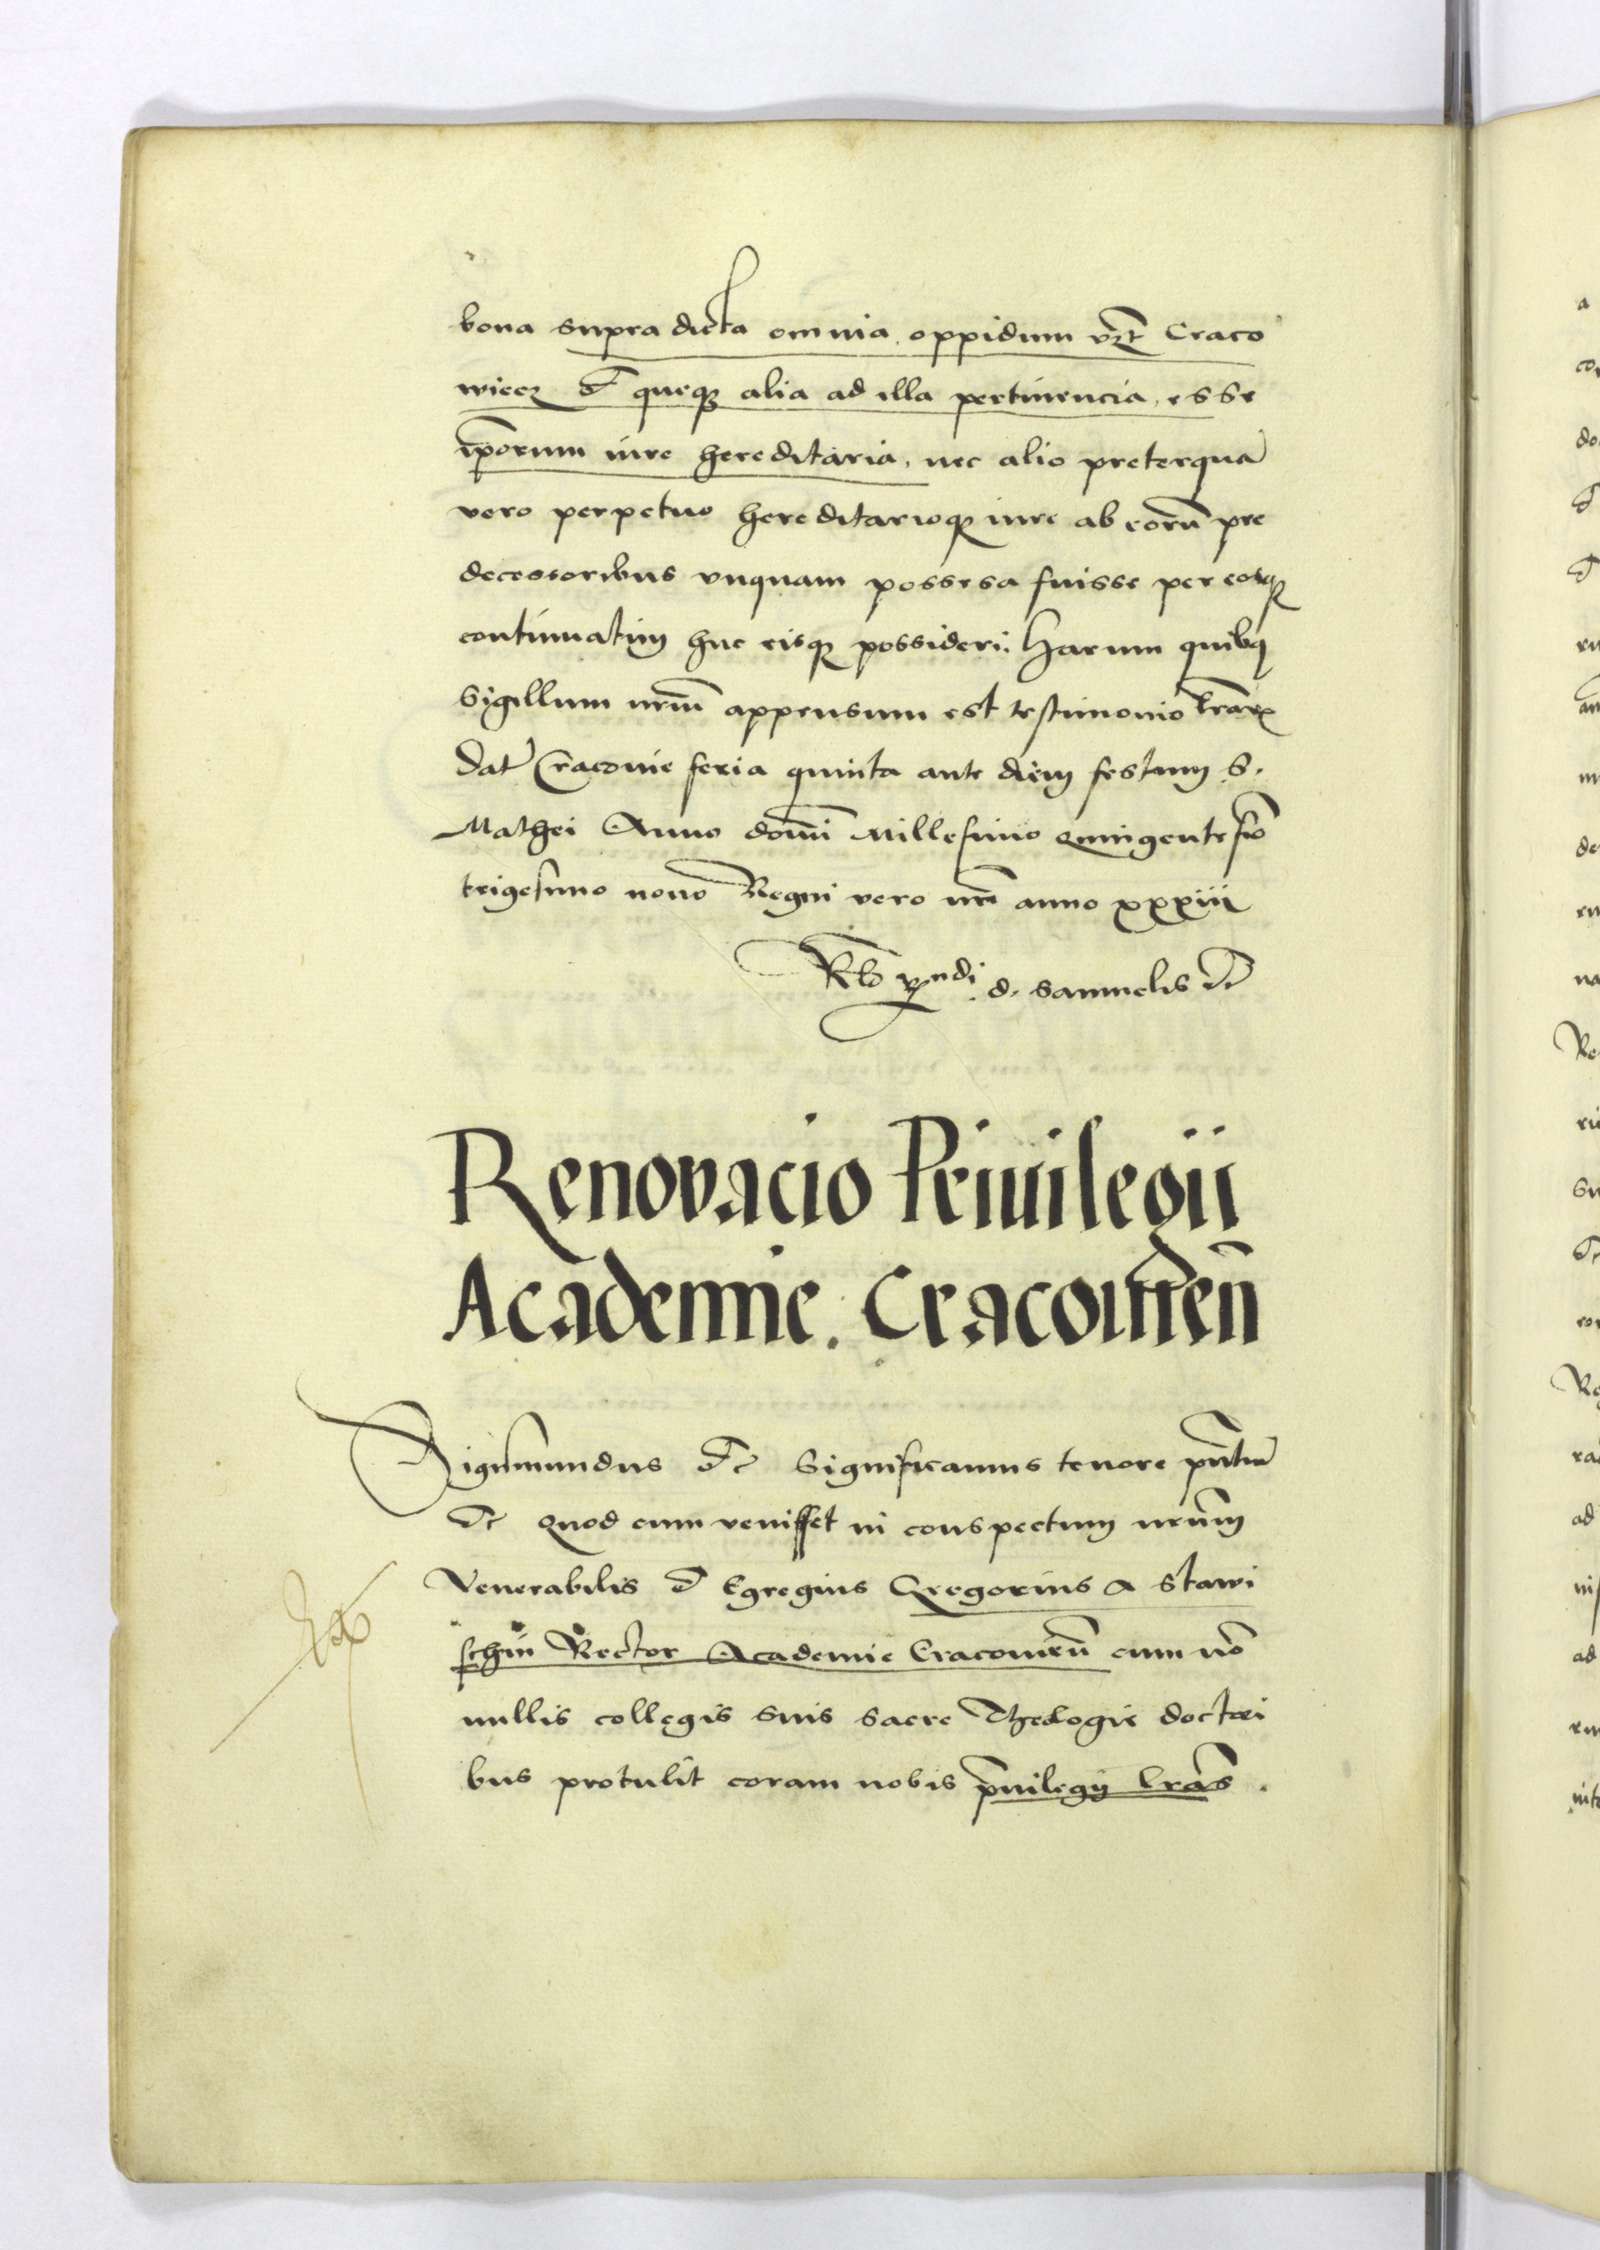 bona supra dicta omnia, oppidum vzt Craco
wiecz et queqz alia ad illa pertinencia, esse
ip̄orum iure hereditaria, nec alio preterquā
vero perpetuo hereditarioqz iure ab eorū pre
decessoribus vnquam possessa fuisse per eosqz
continuatim huc eisqz possideri. Harum quibꝯ
Sigillum nr̄um appensum est testimonio lr̄arꝝ
Dat̄ Cracouie feria quinta ante diem festum S.
Mathei Anno domī Millesimo quingentesīo
trigesimo nono Regni vero nr̄i anno xxxiii
R̄lo d. Samuelis etc
Renovacio Priuilegii
Academie. Cracouień
Sigismundus etc Significamus tenore pn̄tiū
etc Quod cum venisset in conspectum nr̄um
Venerabilis et Egregius Gregorius a Stawi
schin Rector Academie Cracouień cum nō
nullis collegis suis Sacre Theologie doctori
bus protulit coram nobis p̄uilegij lr̄as.